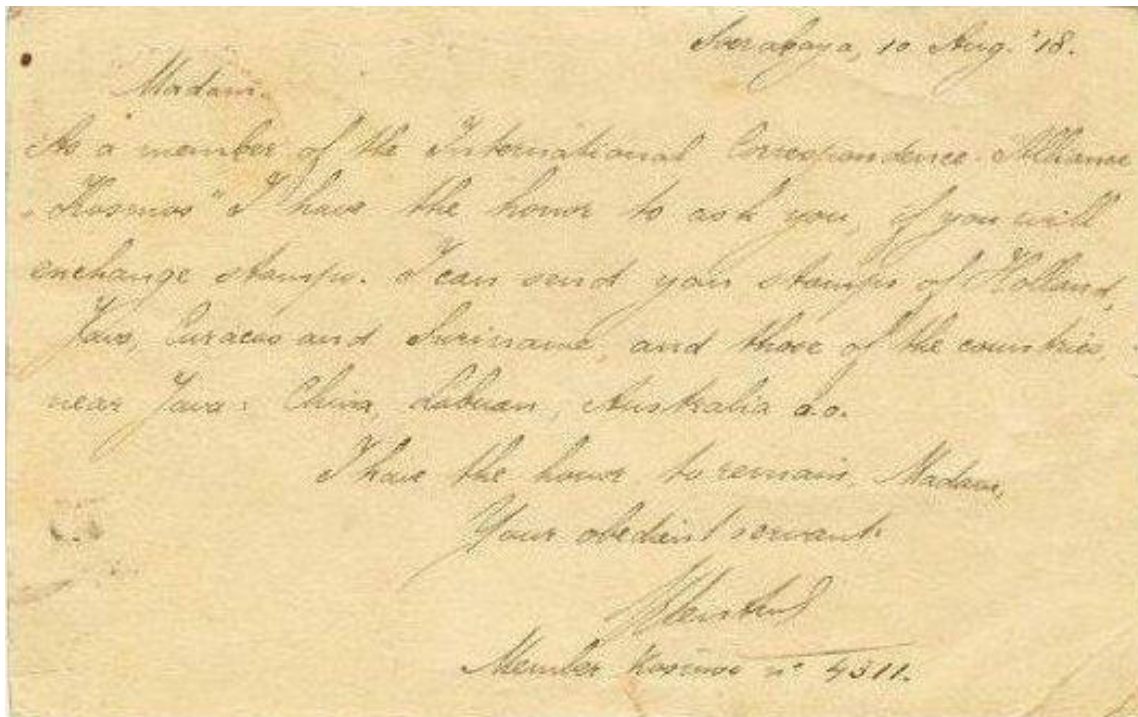 Soerabaya, 10 Aug. '18.
Madam.
As a member of the International Correspondence-Alliance
„Kosmos" I have the honor to ask you, if you will
exchange stamps. I can send you stamps of Holland,
Java, Curacao and Suriname, and those of the countries,
near Java: China, Labuan, Australia a.o.
I have the honor to remain, Madam,
Your obedient servant
Member Kosmos n° 4311.